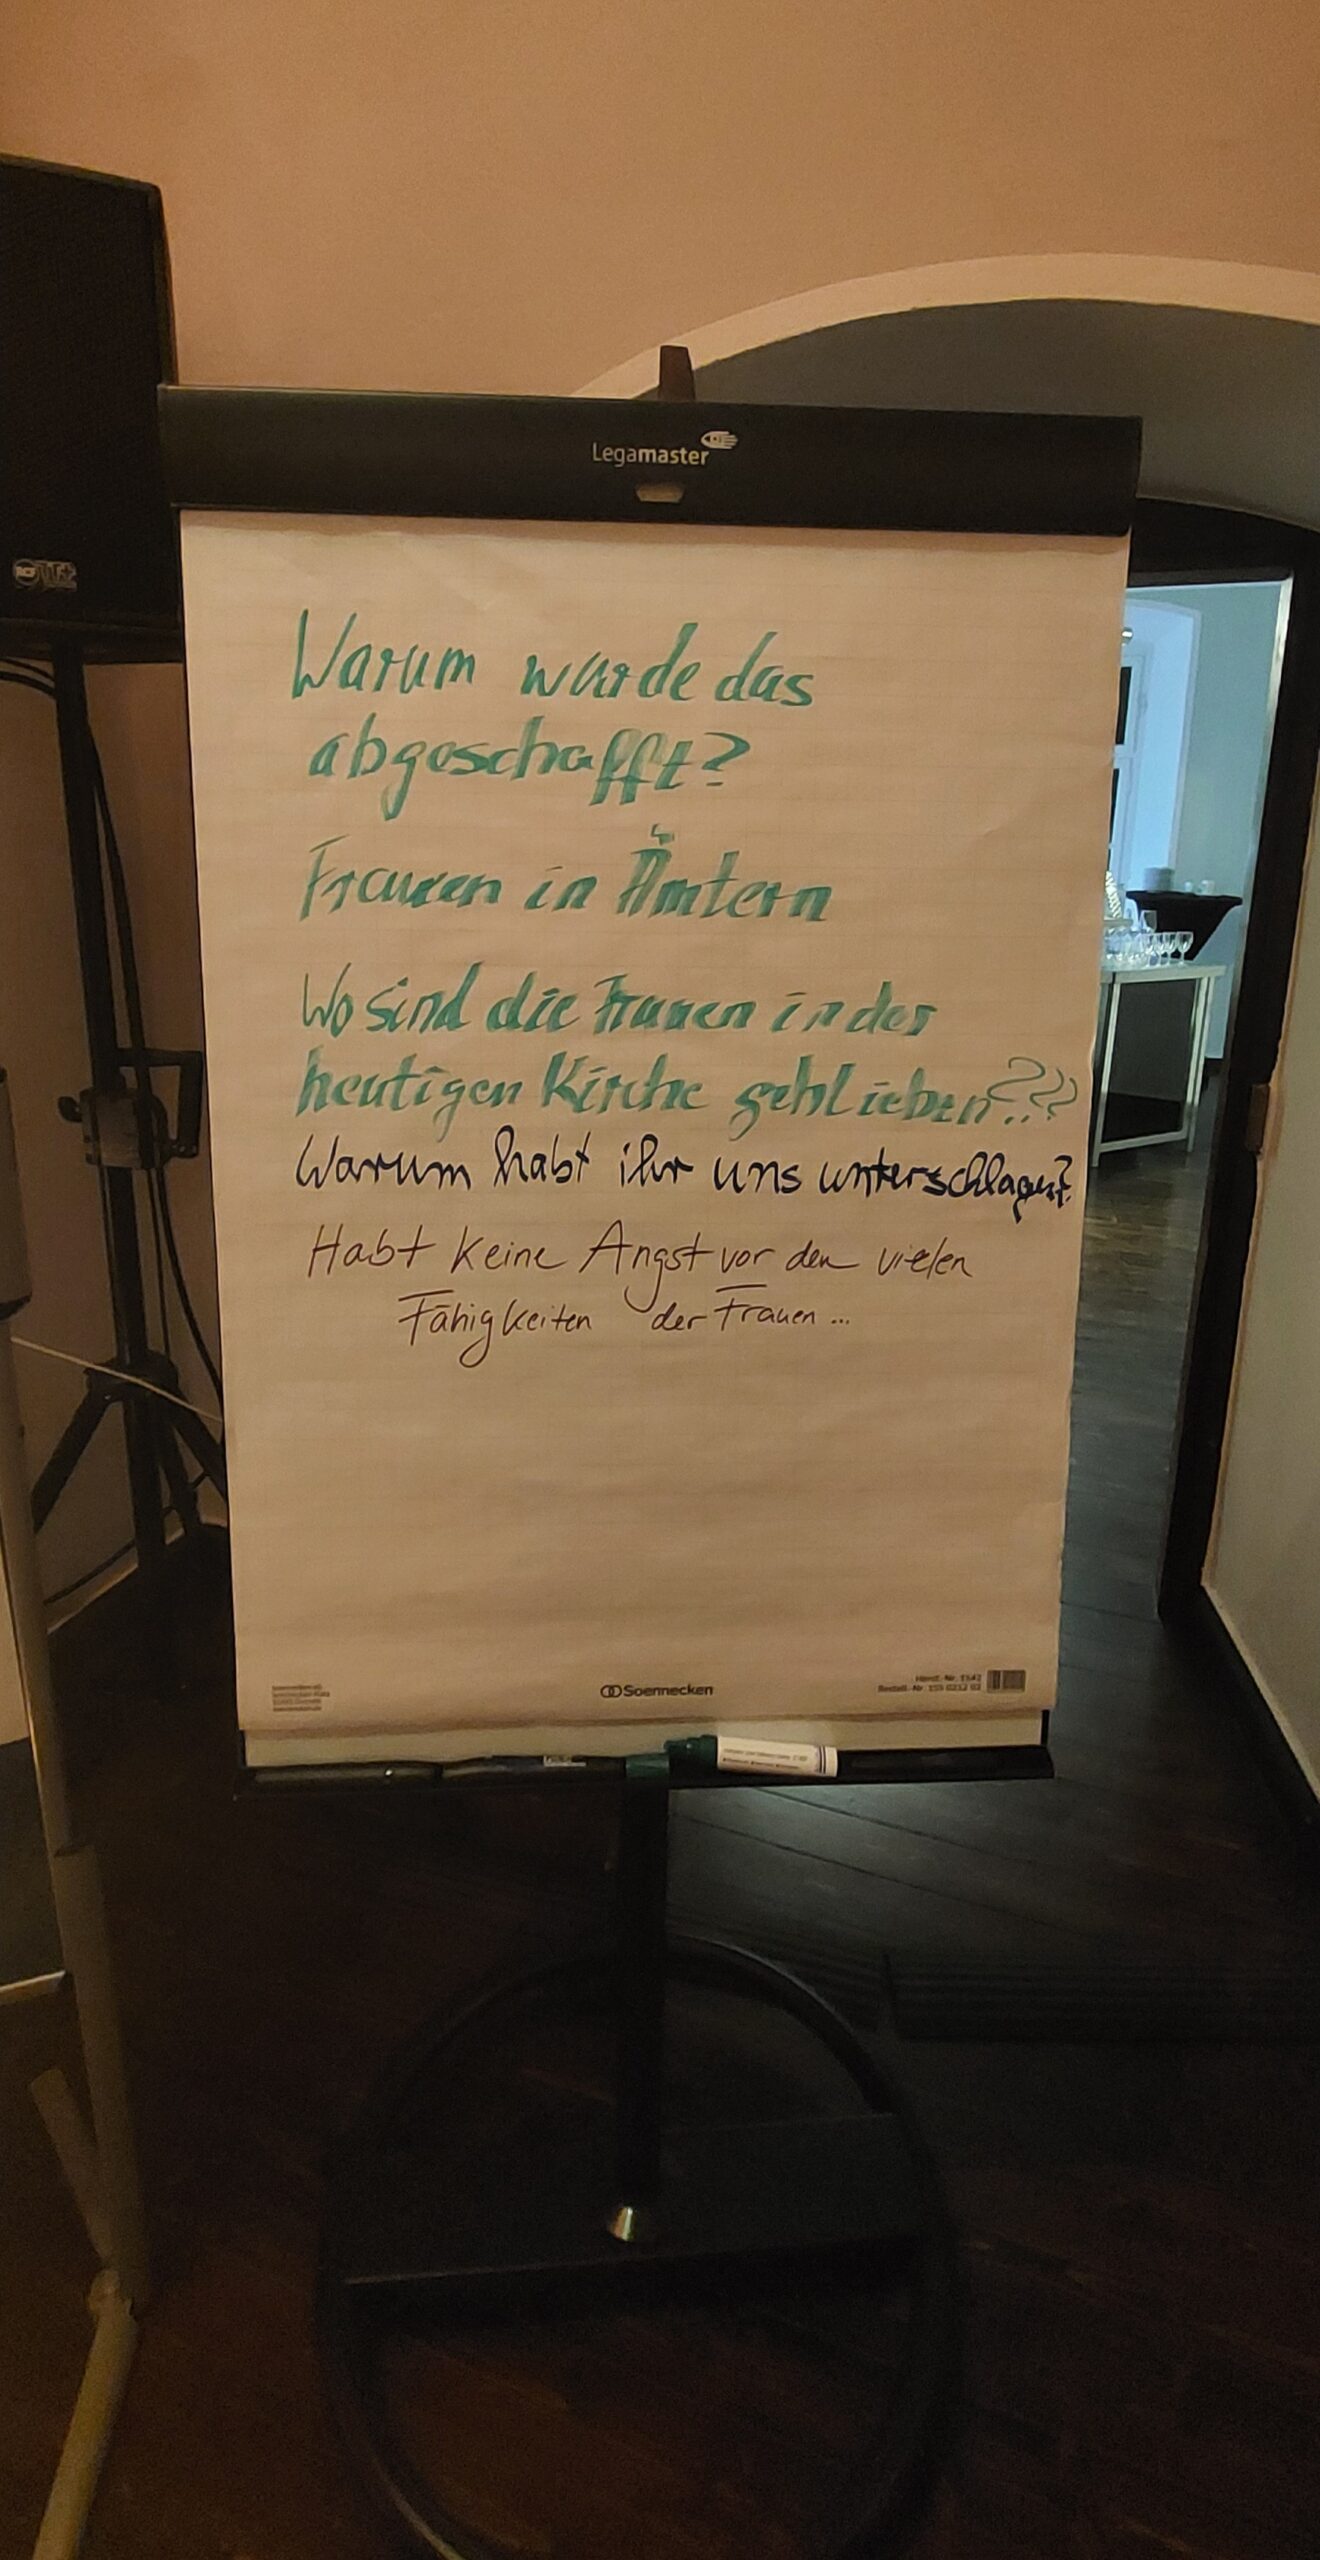 Legamaster
RCF
Warum wurde das
abgeschafft?
Frauen in Ämtern
Wo sind die Frauen in der
heutigen Kirche geblieben???
Warum habt ihr uns unterschlagen?
Habt keine Angst vor den vielen
Fähigkeiten der Frauen ...
Soennecken